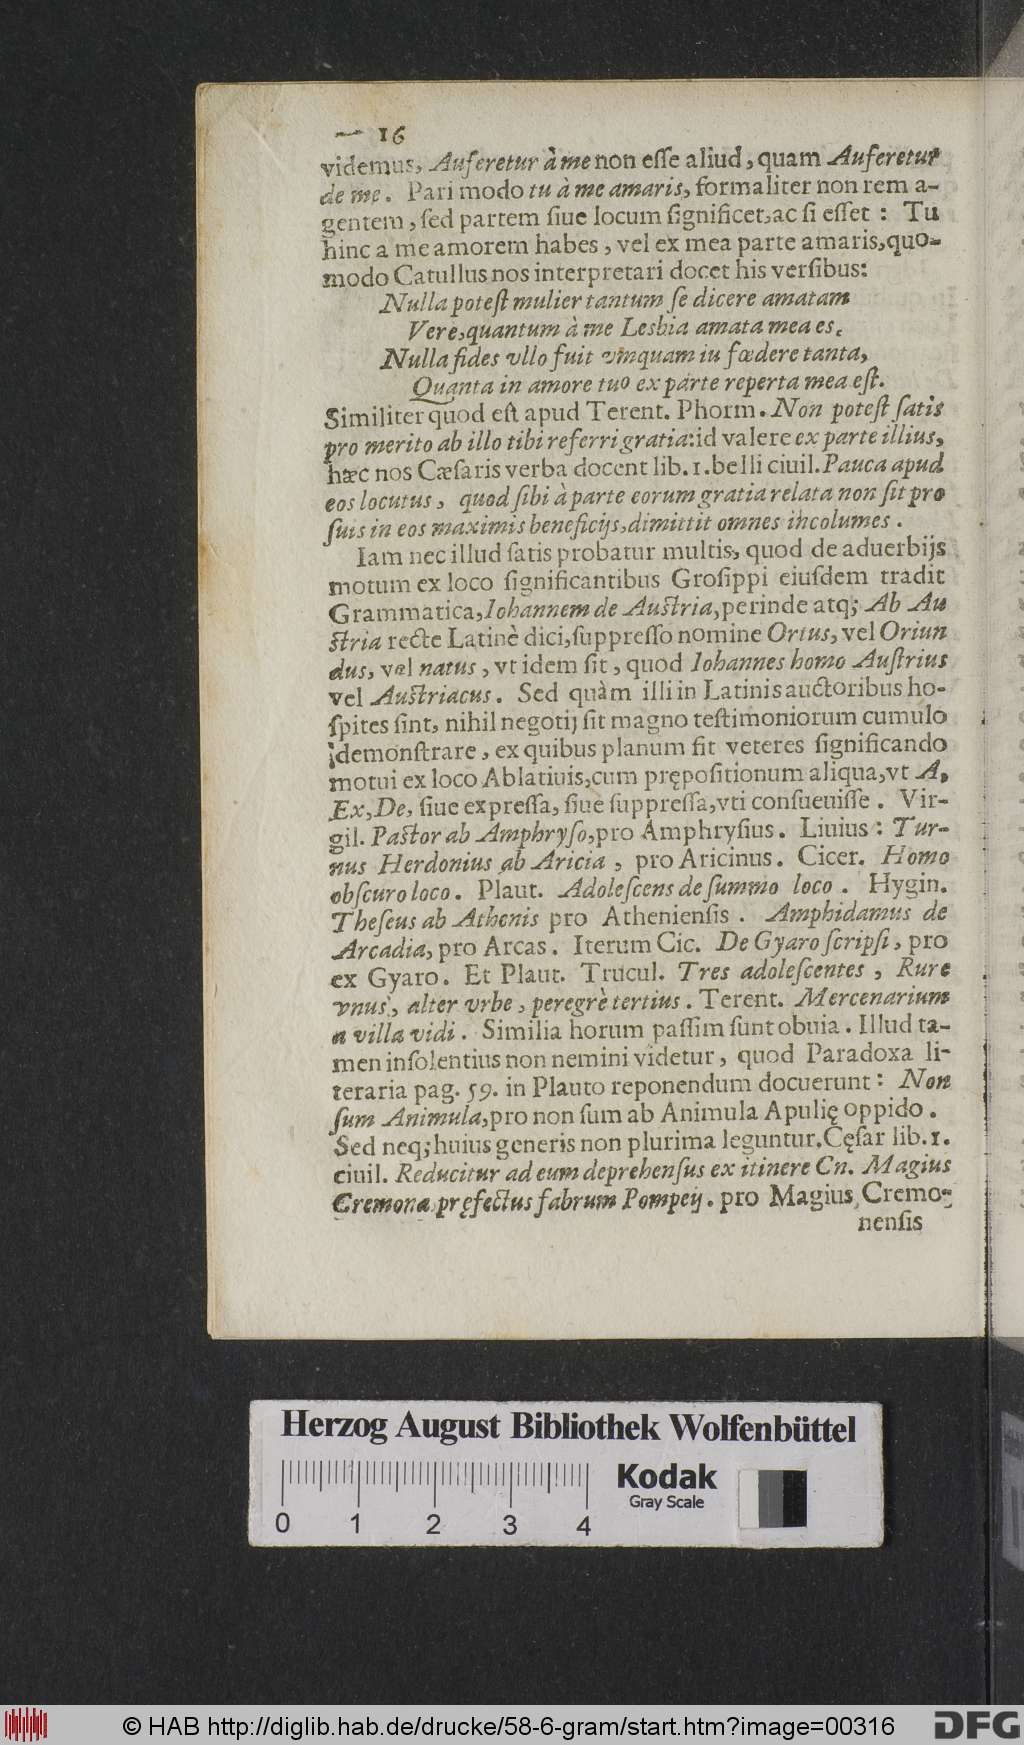 16
videmus, Auferetur à me non eſſe aliud, quam Auferetur
de me. Pari modo tu à me amaris, formaliter non rem a-
gentem, ſed partem ſiue locum ſignificet, ac ſi eſſet: Tu
hinc a me amorem habes, vel ex mea parte amaris, quo-
modo Catullus nos interpretari docet his verſibus:
Nulla poteſt mulier tantum ſe dicere amatam
Vere, quantum à me Lesbia amata mea es.
Nulla fides vllo fuit vnquam iu fœdere tanta,
Quanta in amore tuo ex parte reperta mea eſt.
Similiter quod eſt apud Terent. Phorm. Non poteſt ſatis
pro merito ab illo tibi referri gratia: id valere ex parte illius,
hæc nos Cæſaris verba docent lib. 1. belli ciuil. Pauca apud
eos locutus, quod ſibi à parte eorum gratia relata non ſit pro
ſuis in eos maximis beneficijs, dimittit omnes incolumes.
Iam nec illud ſatis probatur multis, quod de aduerbijs
motum ex loco ſignificantibus Groſippi eiuſdem tradit
Grammatica, Iohannem de Auſtria, perinde atq; Ab Au
ſtria recte Latinè dici, ſuppreſſo nomine Ortus, vel Oriun
dus, vel natus, vt idem ſit, quod Iohannes homo Auſtrius
vel Auſtriacus. Sed quàm illi in Latinis auctoribus ho-
ſpites ſint, nihil negotij ſit magno teſtimoniorum cumulo
demonſtrare, ex quibus planum fit veteres ſignificando
motui ex loco Ablatiuis, cum prępoſitionum aliqua, vt A,
Ex, De, ſiue expreſſa, ſiue ſuppreſſa, vti conſueuiſſe. Vir-
gil. Paſtor ab Amphryſo, pro Amphryſius. Liuius: Tur-
nus Herdonius ab Aricia, pro Aricinus. Cicer. Homo
obſcuro loco. Plaut. Adoleſcens de ſummo loco. Hygin.
Theſeus ab Athenis pro Athenienſis. Amphidamus de
Arcadia, pro Arcas. Iterum Cic. De Gyaro ſcripſi, pro
ex Gyaro. Et Plaut. Trucul. Tres adoleſcentes, Rure
vnus, alter vrbe, peregrè tertius. Terent. Mercenarium
a villa vidi. Similia horum paſſim ſunt obuia. Illud ta-
men inſolentius non nemini videtur, quod Paradoxa li-
teraria pag. 59. in Plauto reponendum docuerunt: Non
ſum Animula, pro non ſum ab Animula Apulię oppido.
Sed neq; huius generis non plurima leguntur. Cęſar lib. 1.
ciuil. Reducitur ad eum deprehenſus ex itinere Cn. Magius
Cremona pręfectus fabrum Pompeij. pro Magius Cremo-
nenſis
Herzog August Bibliothek Wolfenbüttel
Kodak
Gray Scale
0 1 2 3 4
© HAB http://diglib.hab.de/drucke/58-6-gram/start.htm?image=00316
DFG